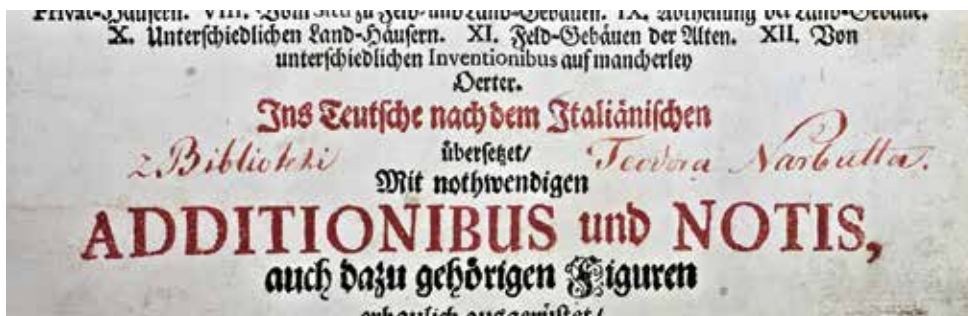 Privat-Häusern. VIII. Vom Sitz zu Feld- und Land-Gebäuen. IX. Abtheilung der Land-Gebäue.
X. Unterschiedlichen Land-Häusern. XI. Feld-Gebäuen der Alten. XII. Von
unterschiedlichen Inventionibus auf mancherley
Oerter.
Ins Teutsche nach dem Italiänischen
übersetzet/
z Biblioteki Teodora Narbutta.
Mit nothwendigen
ADDITIONIBUS und NOTIS,
auch dazu gehörigen Figuren
erbaulich ausgerüstet/